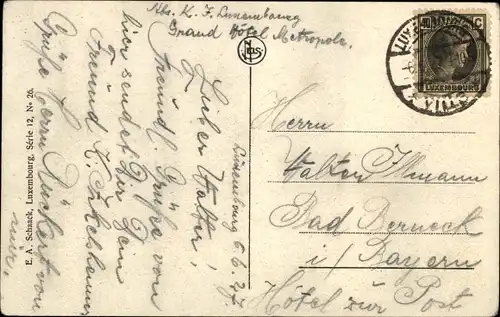 Abs. K. F. Luxembourg
Grand Hôtel Metropole.
Luxembourg 6/6. 27.
Lieber Walter!
Freundl. Grüße von
hier sendet Dir Dein
Freund K.
Grüße Herrn Ruckert von
mir.
E. A. Schaack, Luxembourg, Série 12, No 26.
40 C
LUXEMBOURG
Herrn
Walter Illmann
Bad Berneck
i/ Bayern
Hôtel zur Post